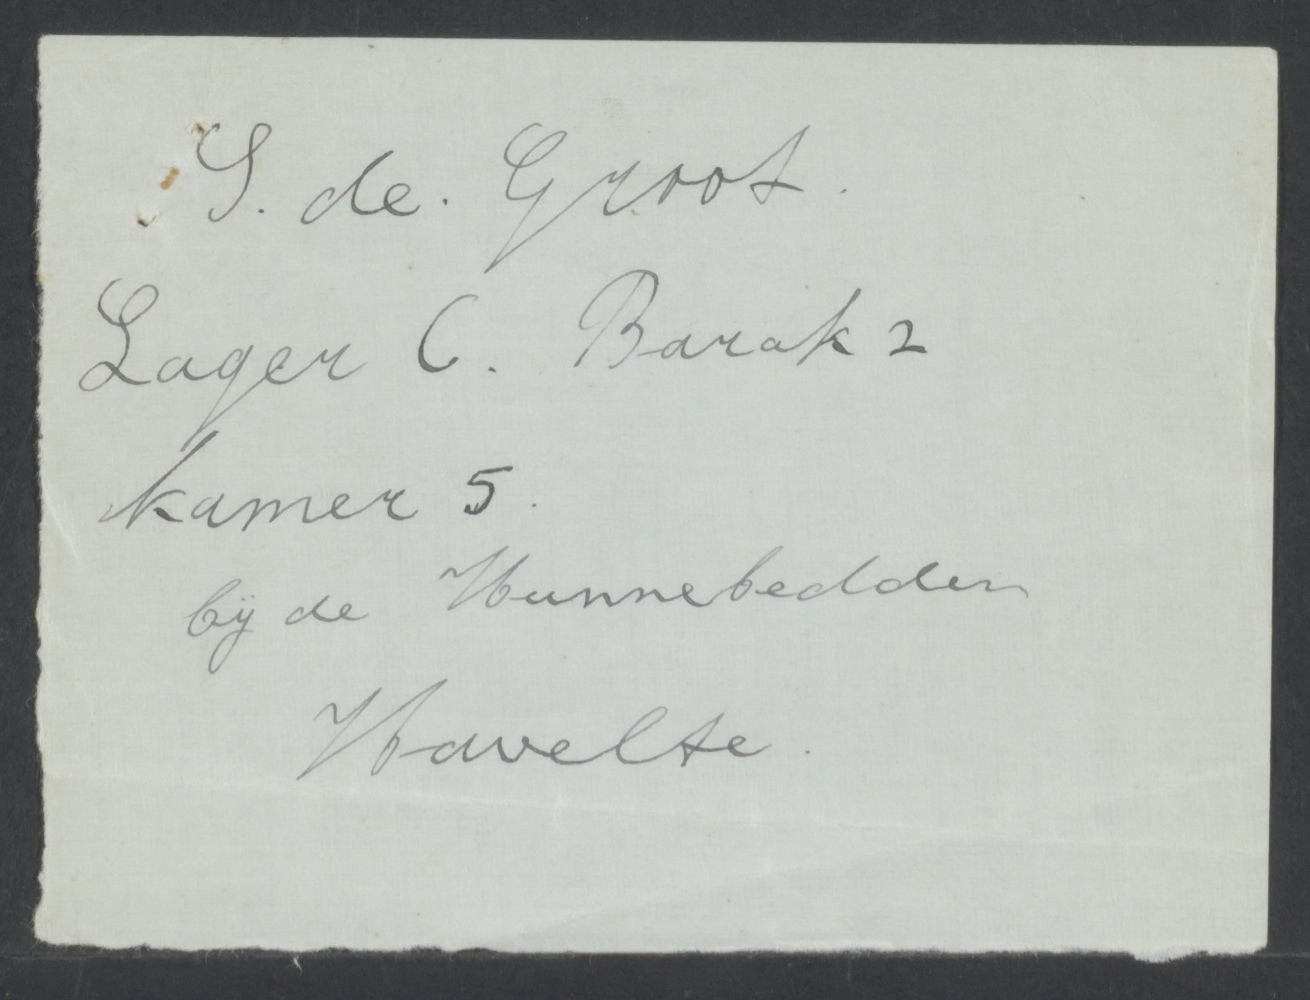 S. de. Groot.
Lager C. Barak 2
kamer 5.
bij de Hunnebedden
Havelte.